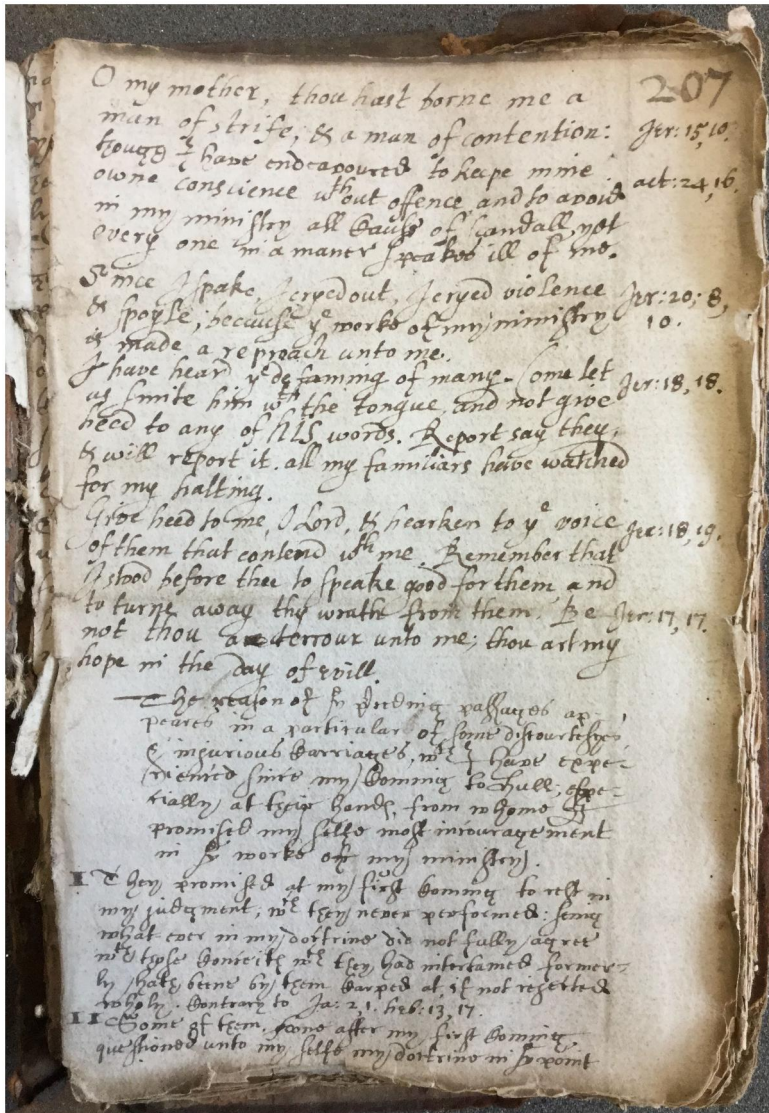 207
O my mother, thou hast borne me a
man of strife, & a man of contention: Jer: 15, 10.
though I have endeavoured to keepe mine
owne conscience wth out offence and to avoid act: 24, 16.
in my ministry all cause of scandall, yet
every one in a maner speakes ill of me.
Since I spake, I cryed out, I cryed violence Jer: 20: 8,
& spoyle; because ye works of my ministry 10.
is made a reproach unto me.
I have heard ye defaming of many. Come let
us smite him wth the tongue, and not give Jer: 18, 18.
heed to any of his words. Report say they,
& will report it. all my familiars have watched
for my halting.
Give heed to me, O Lord, & hearken to ye voice Jer: 18, 19.
of them that contend wth me. Remember that
I stood before thee to speake good for them and
to turne away thy wrath from them. Be Jer: 17, 17.
not thou a terrour unto me; thou art my
hope in the day of evill.
The reason of ye preceding passages ap-
peares in a particular of some discourtesyes
& iniurious carriages, wch I have expe-
rienced since my comming to hull, espe-
cially at their hands, from whome I
promised my selfe most incouragement
in ye works of my ministry.
I They promised at my first comming to rest in
my judgment, wch they never performed: seing
what ever in my doctrine did not fully agree
wth those conceits wch they had intertained former-
ly hath beene by them carped at, if not rejected
wholy. Contrary to Ja: 2, 1. heb: 13, 17.
II Some of them soone after my first comming
questioned unto my selfe my doctrine in ye point